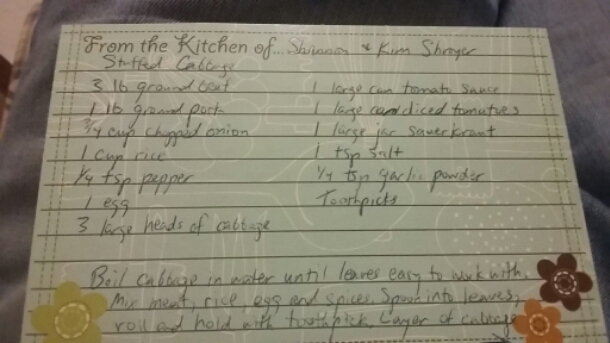 From the Kitchen of... Shannon & Kim Shroyer
Stuffed Cabbage
3 lb ground beef
1 large can tomato sauce
1 lb ground pork
1 large can diced tomatoes
3/4 cup chopped onion
1 large jar sauerkraut
1 cup rice
1 tsp salt
1/4 tsp pepper
1/4 tsp garlic powder
1 egg
Toothpicks
3 large heads of cabbage
Boil cabbage in water until leaves easy to work with.
Mix meat, rice, egg and spices. Spoon into leaves,
roll and hold with toothpick. Layer of cabbage